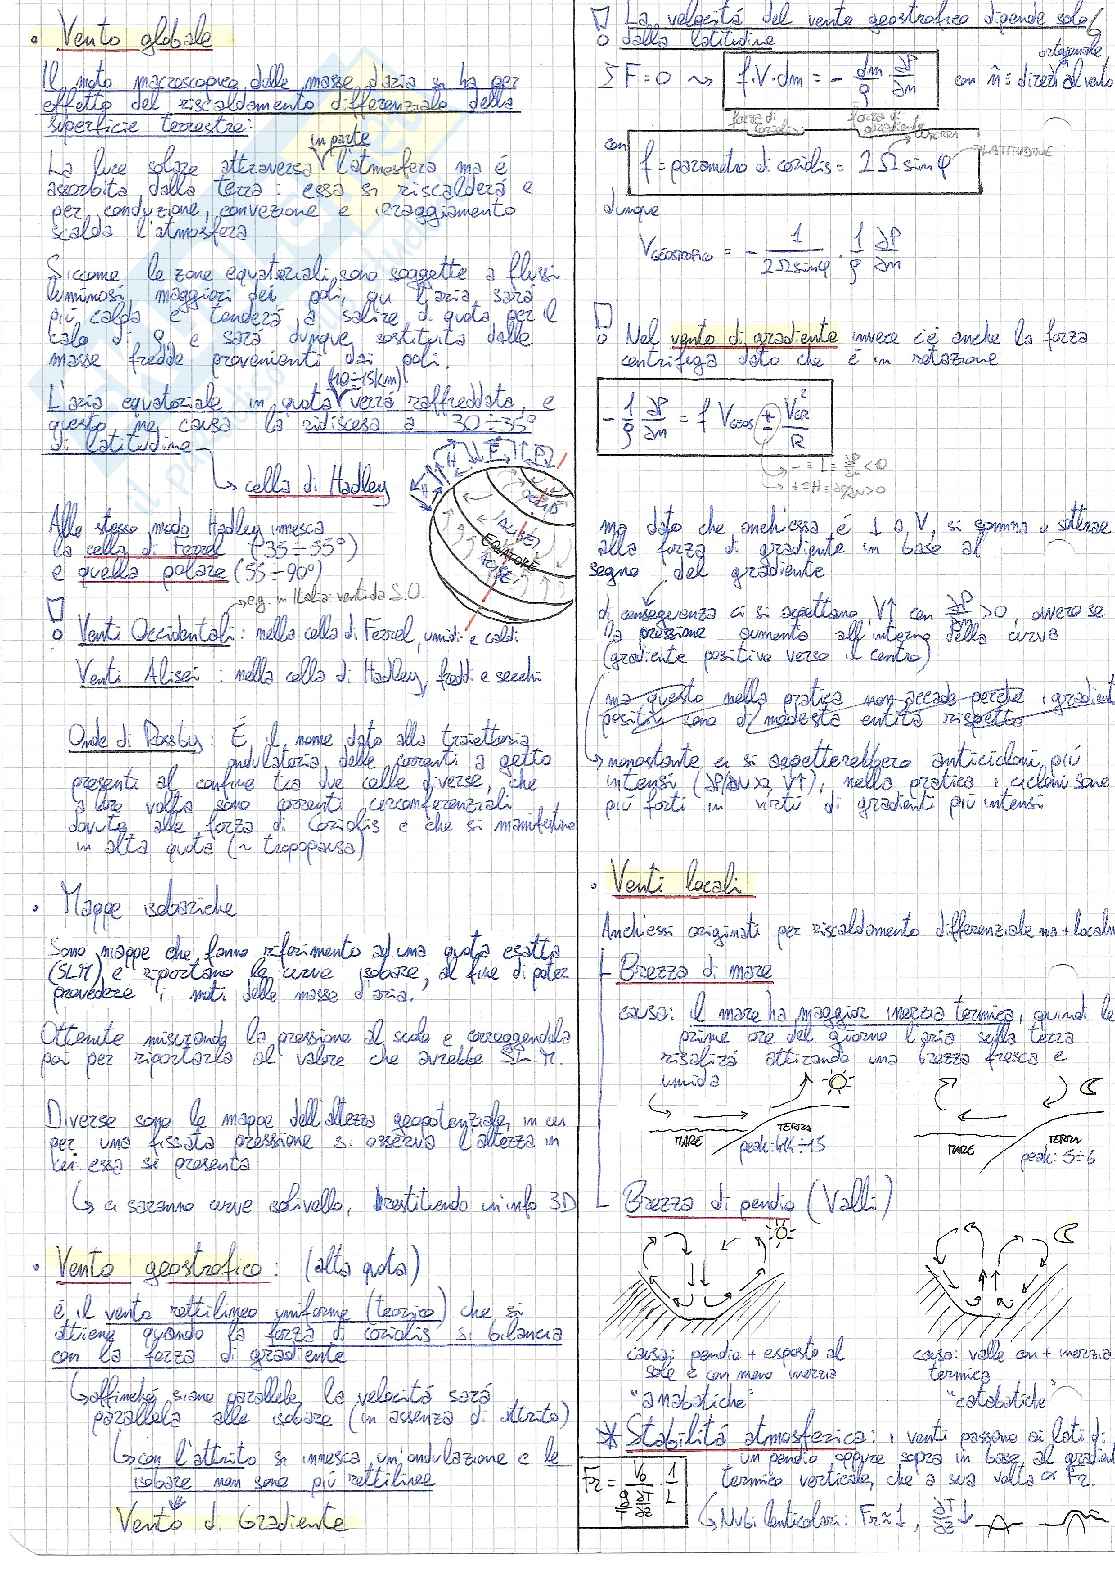 • Vento globale
Il moto macroscopico delle masse d'aria si ha per
effetto del riscaldamento differenziale della
superficie terrestre:
in parte
La luce solare attraversa l'atmosfera ma é
assorbita dalla terra: essa si riscalderá e
per conduzione, convezione e irraggiamento
scalda l'atmosfera
Siccome le zone equatoriali sono soggette a flussi
luminosi maggiori dei poli, qu l'aria sará
piú calda e tenderá a salire di quota per il
calo di ρ e sará dunque sostituita dalle
masse fredde provenienti dai poli.
(10÷15km)
L'aria equatoriale in quota verrá raffreddata e
questo ne causa la ridiscesa a 30÷35°
di latitudine
↳ cella di Hadley
H F P
ALISEI
EQUATORE
Allo stesso modo Hadley innesca
la cella di Ferrel (35÷55°)
e quella polare (55÷90°)
→ e.g. in Italia venti da S.O.
Venti Occidentali: nella cella di Ferrel, umidi e caldi
Venti Alisei: nella cella di Hadley, freddi e secchi
Onde di Rossby: É il nome dato alla traiettoria
ondulatoria delle correnti a getto
presenti al confine tra due celle diverse, che
a loro volta sono correnti circonferenziali
dovute alla forza di Coriolis e che si manifestano
in alta quota (~ tropopausa)
• Mappe isobariche
Sono mappe che fanno riferimento ad una quota esatta
(SLM) e riportano le curve isobare, al fine di poter
prevedere i moti delle masse d'aria.
Ottenute misurando la pressione al suolo e correggendola
poi per riportarla al valore che avrebbe SLM.
Diverse sono le mappe dell'altezza geopotenziale, in cui
per una fissata pressione si osserva l'altezza in
cui essa si presenta
↳ ci saranno curve isolivello, restituendo un'info 3D
• Vento geostrofico: (alta quota)
é il vento rettilineo uniforme (teorico) che si
ottiene quando la forza di coriolis si bilancia
con la forza di gradiente
↳ affinché siano parallele, la velocitá sará
parallela alle isobare (in assenza di attrito)
↳ con l'attrito si innesca un'ondulazione e le
isobare non sono piú rettilinee
Vento di Gradiente
La velocitá del vento geostrofico dipende solo
dalla latitudine
ΣF=0 ⇝ f·V·dm = - dm/ρ ∂P/∂n con n̂ = direz. ortogonale al vento
forza di coriolis forza di gradiente
con f = parametro di coriolis = 2Ω sinφ
TERRA
LATITUDINE
dunque
V GEOSTROFICO = - 1/2Ωsinφ · 1/ρ ∂P/∂n
Nel vento di gradiente invece c'é anche la forza
centrifuga dato che é in rotazione
- 1/ρ ∂P/∂n = f V GEOS ± V GR²/R
→ - = L = ∂P/∂n <0
→ + = H = ∂P/∂n >0
ma dato che anch'essa é ⊥ a V, si somma o sottrae
alla forza di gradiente in base al
segno del gradiente
di conseguenza ci si aspettano V↑ con ∂P/∂n >0, ovvero se
la pressione aumenta all'interno della curva
(gradiente positivo verso il centro)
ma questo nella pratica non accade perché i gradienti
positivi sono di modesta entitá rispetto
↳ nonostante ci si aspetterebbero anticicloni piú
intensi (∂P/∂n >0, V↑), nella pratica i cicloni sono
piú forti in virtú di gradienti piú intensi
• Venti locali
Anch'essi originati per riscaldamento differenziale ma + localm
Brezza di mare
causa: il mare ha maggior inerzia termica, quindi le
prime ore del giorno l'aria sulla terra
risalirá attirando una brezza fresca e
umida
MARE TERRA
peak: 14÷15
MARE TERRA
peak: 5÷6
Brezza di pendio (Valli)
causa: pendio + esposto al
sole e con meno inerzia
"anabatiche"
causa: valle con + inerzia
termica
"catabatiche"
* Stabilitá atmosferica: i venti passano ai lati di
un pendio oppure sopra in base al gradiente
termico verticale, che a sua volta ∝ Fr.
Fr = V₀ / (g/T ∂T/∂z) 1/L
↳ Nubi lenticolari: Fr≈1, ∂T/∂z ↓